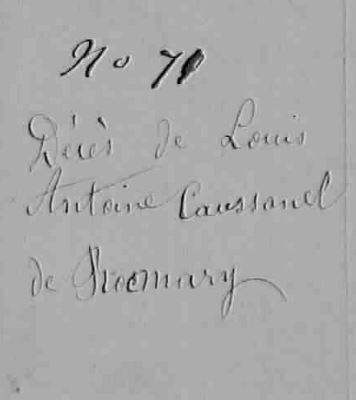 No 71
Décès de Louis
Antoine Caussanel
de Proemary